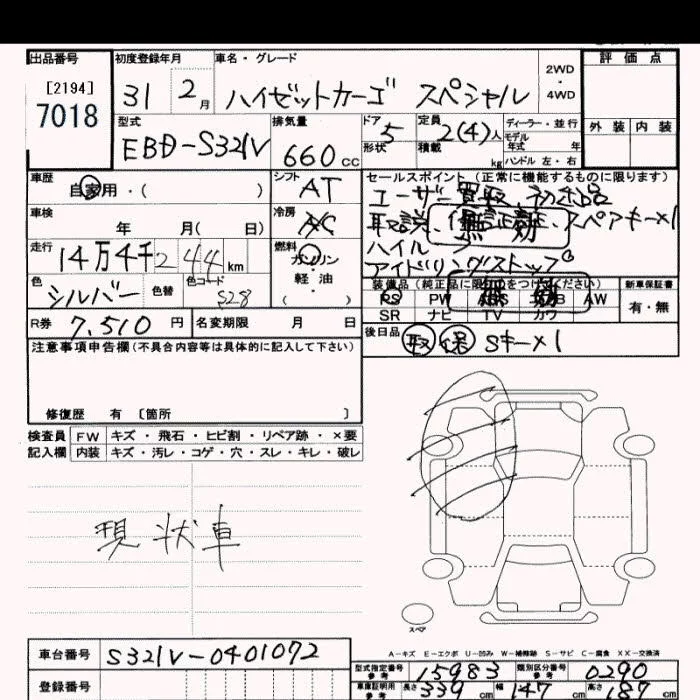 出品番号
[2194]
7018
初度登録年月
31 2月
車名・グレード
ハイゼットカーゴ スペシャル
2WD
・
4WD
評価点
外装 内装
型式
EBD-S321V
排気量
660cc
ドア 5
形状
定員 2(4)人
積載 kg
ディーラー・並行
モデル
年式 年
ハンドル 左・右
車歴
自家用・( )
シフト
AT
セールスポイント (正常に機能するものに限ります)
ユーザー買取、初出品
取説、保証書、スペアキー×1
ハイル
アイドリングストップ
車検
年 月( 日)
冷房
AC
走行
14万4千244km
燃料
ガソリン
軽油
( )
色
シルバー
色替
色コード
S28
装備品(純正品に限り○をつけてください)
PS PW ABS エアB AW
SR ナビ TV カワ
新車保証書
有・無
無効
無効
R券 7,510円
名変期限 月 日
後日品
取 保 Sキー×1
注意事項申告欄(不具合内容等は具体的に記入して下さい)
修復歴 有 〔箇所 〕
検査員 FW キズ・飛石・ヒビ割・リペア跡・×要
記入欄 内装 キズ・汚レ・コゲ・穴・スレ・キレ・破レ
現状車
スペア
A-キズ E-エクボ U-凹み W-補修跡 S-サビ C-腐食 XX-交換済
車台番号 S321V-0401072
登録番号
型式指定番号
参考
15983
類別区分番号
参考
0290
車庫証明用
参考
長さ 339cm 幅 147cm 高さ 187cm